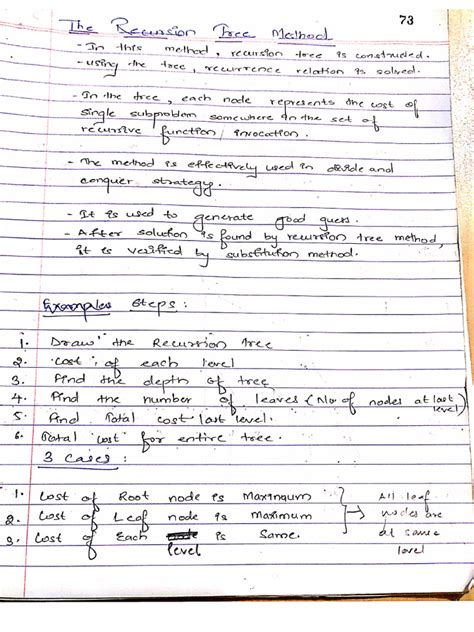 73
The Recursion Tree Method
- In this method, recursion tree is constructed.
- using the tree, recurrence relation is solved.
- In the tree, each node represents the cost of
single subproblem somewhere in the set of
recursive function invocation.
- The method is effectively used in divide and
conquer strategy.
- It is used to generate good guess.
- After solution is found by recursion tree method,
it is verified by substitution method.
Steps :
1. Draw the Recursion tree
2. Cost of each level
3. Find the depth of tree
4. Find the number of leaves (No of nodes at last
level)
5. Find Total cost last level.
6. Total cost for entire tree.
3 cases :
1. Cost of Root node is Maximum
2. Cost of Leaf node is maximum
3. Cost of Each level is Same.
All leaf
nodes are
at same
level